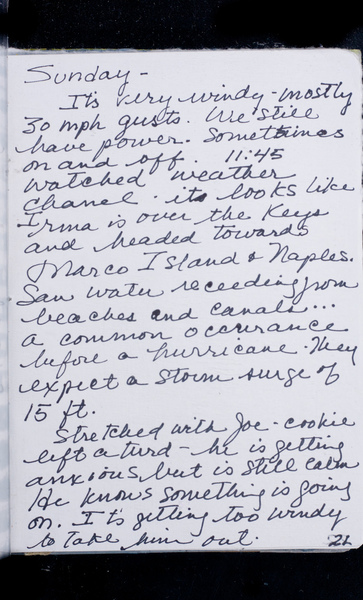 Sunday -
It's very windy - mostly
30 mph gusts. We still
have power. Sometimes
on and off. 11:45
watched weather
chanel. it looks like
Irma is over the Keys
and headed towards
Marco Island & Naples.
Saw water receeding from
beaches and canals...
a common occurance
before a hurricane. They
expect a storm surge of
15 ft.
Stretched with Joe - cookie
left a turd - he is getting
anxious, but is still calm
He knows something is going
on. It is getting too windy
to take him out.
21